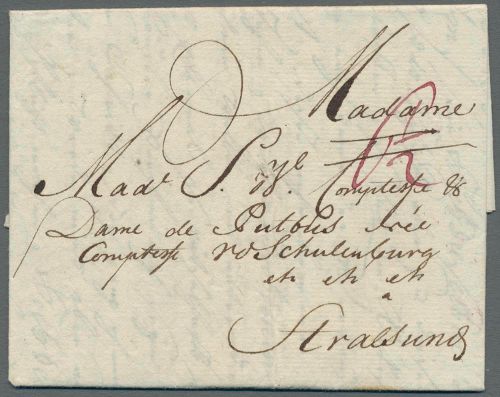 Madame
Mad.e
Comptesse &
Dame de Putbus née
Comptesse v Schulenburg
etc etc etc
a
Stralsund